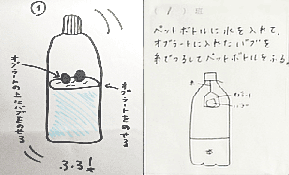 ①
オブラートの上にバブをのせる
オブラートをのせる
ふる！
ペットボトルに水を入れて、
オブラートに入れたバブを
糸でつるしてペットボトルをふる。